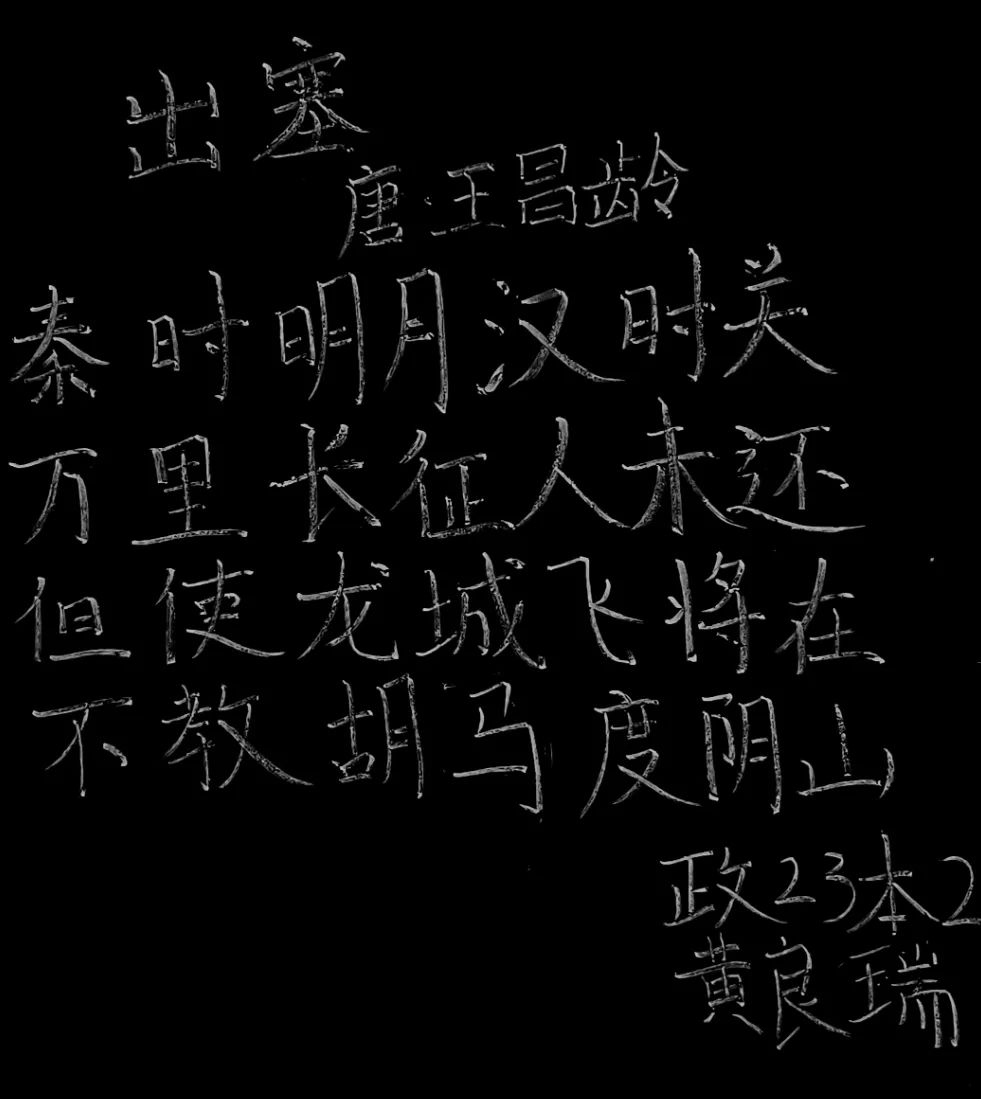 出塞
唐·王昌龄
秦时明月汉时关
万里长征人未还
但使龙城飞将在
不教胡马度阴山
政23本2
黄良瑞